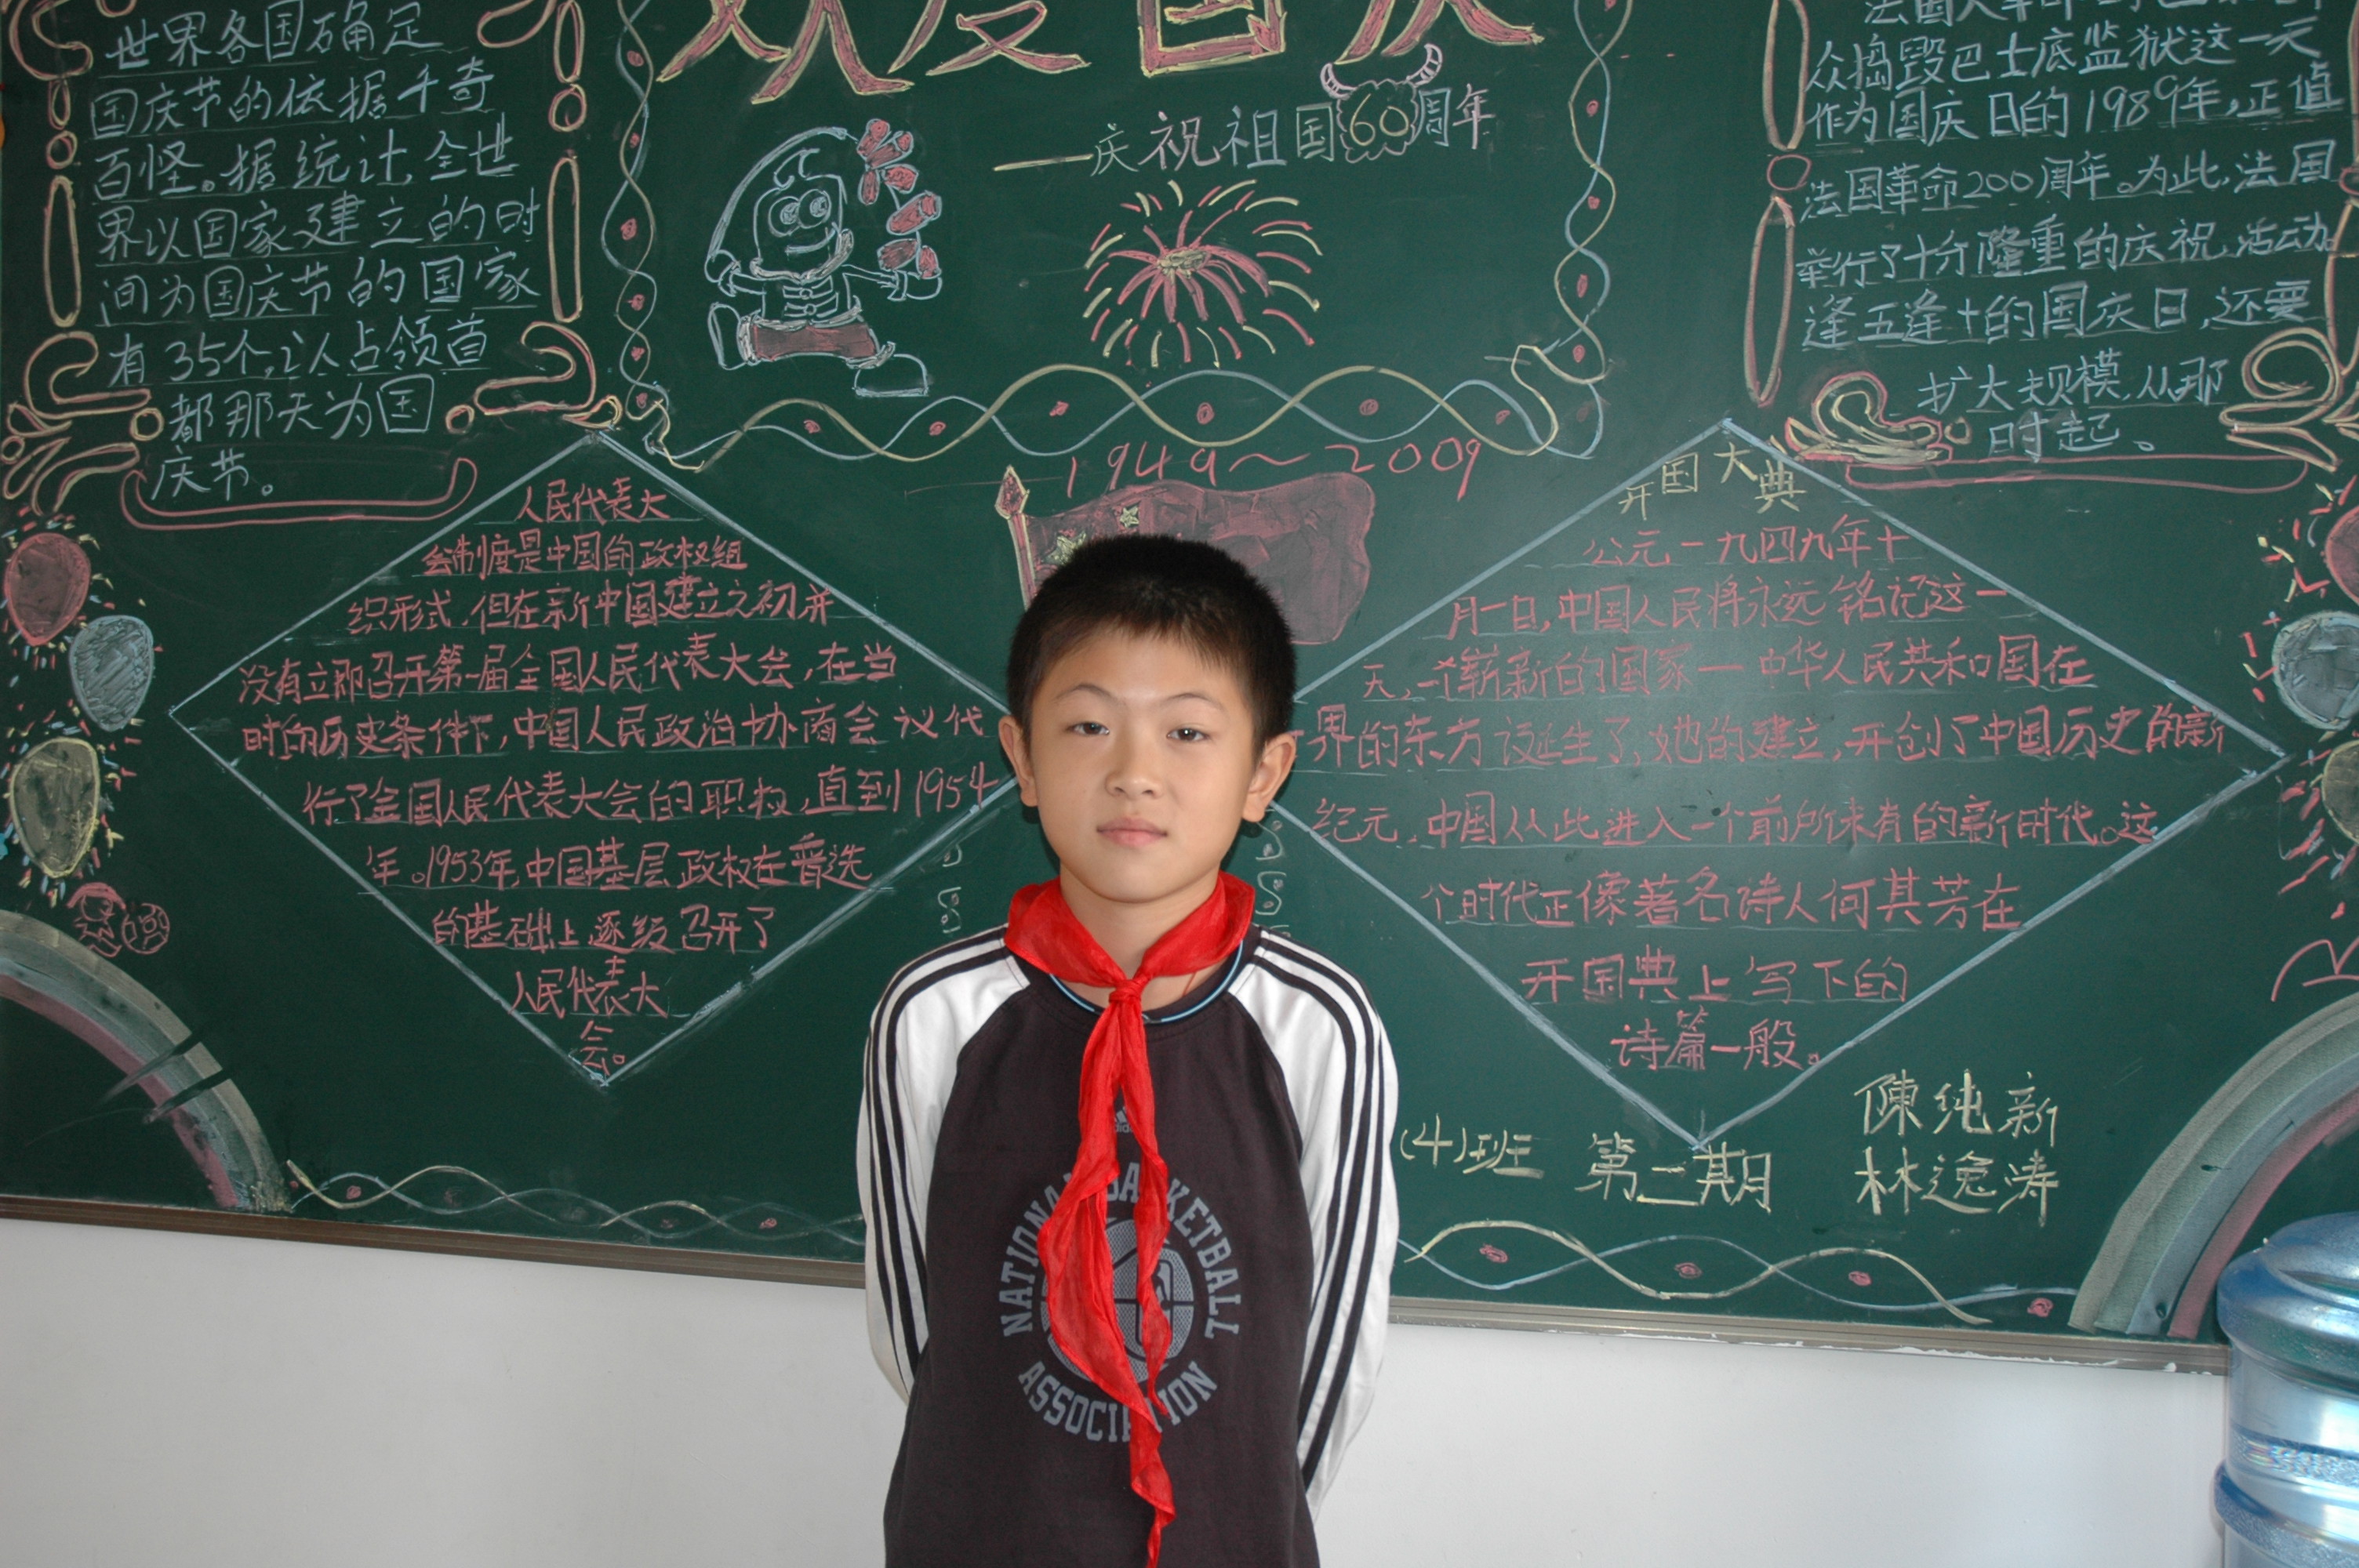 世界各国确定
国庆节的依据千奇
百怪。据统计,全世
界以国家建立的时
间为国庆节的国家
有35个,以占领首
都那天为国
庆节。
欢度国庆
——庆祝祖国60周年
众捣毁巴士底监狱这一天
作为国庆日的1989年,正值
法国革命200周年。为此,法国
举行了十分隆重的庆祝活动
逢五逢十的国庆日,还要
扩大规模,从那
时起。
1949~2009
人民代表大
会制度是中国的政权组
织形式,但在新中国建立之初并
没有立即召开第一届全国人民代表大会,在当
时的历史条件下,中国人民政治协商会议代
行了全国人民代表大会的职权,直到1954
年。1953年,中国基层政权在普选
的基础上,逐级召开了
人民代表大
会。
开国大典
公元一九四九年十
月一日,中国人民将永远铭记这一
天,一个崭新的国家—中华人民共和国在
界的东方诞生了,她的建立,开创了中国历史的新
纪元,中国从此进入一个前所未有的新时代。这
个时代正像著名诗人何其芳在
开国典上写下的
诗篇一般。
(4)班 第二期
陳纯新
林逸涛
adidas
NATIONAL BASKETBALL
ASSOCIATION